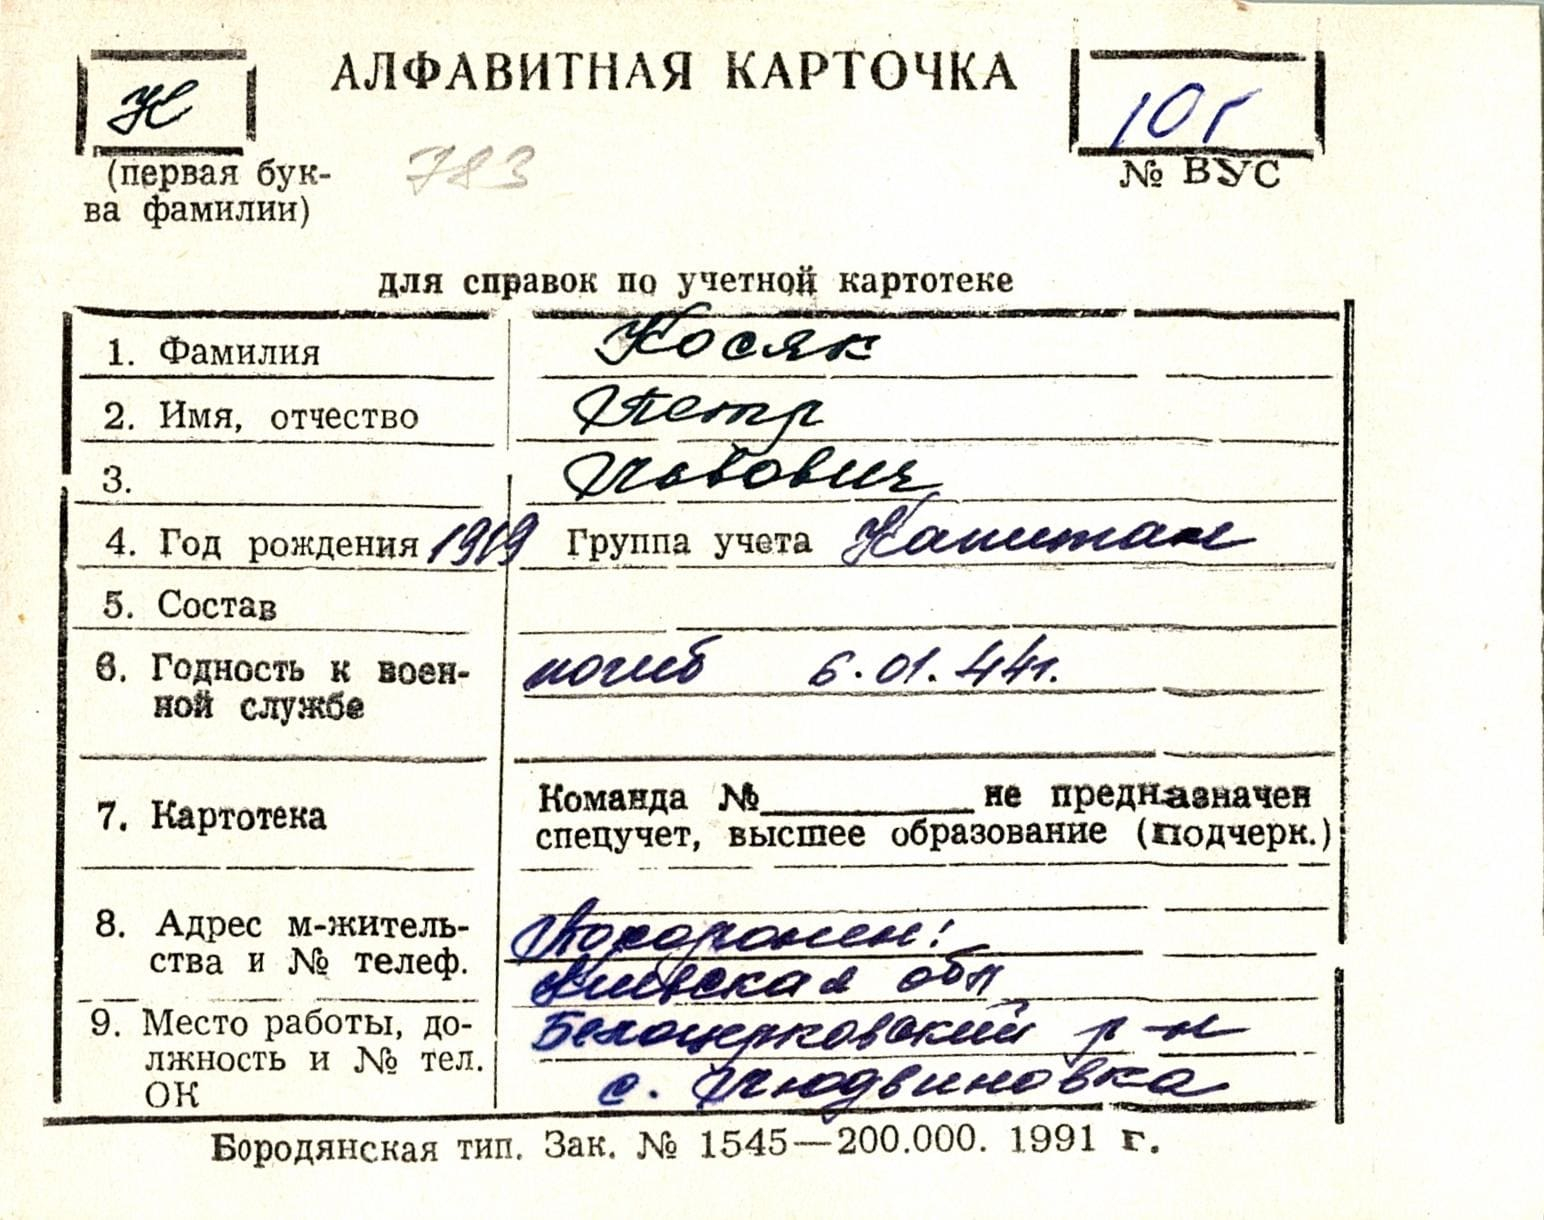 К
АЛФАВИТНАЯ КАРТОЧКА
10г
(первая бук-
ва фамилии)
783
№ ВУС
для справок по учетной картотеке
1. Фамилия Косяк
2. Имя, отчество Петр
3. Львович
4. Год рождения 1919 Группа учета Капитан
5. Состав
6. Годность к воен-
ной службе
погиб 6.01.44г.
7. Картотека
Команда № не предназначен
спецучет, высшее образование (подчерк.)
8. Адрес м-житель-
ства и № телеф.
Похоронен:
Киевская обл
9. Место работы, до-
лжность и № тел.
ОК
Белоцерковский р-н
с. Людвиновка
Бородянская тип. Зак. № 1545—200.000. 1991 г.